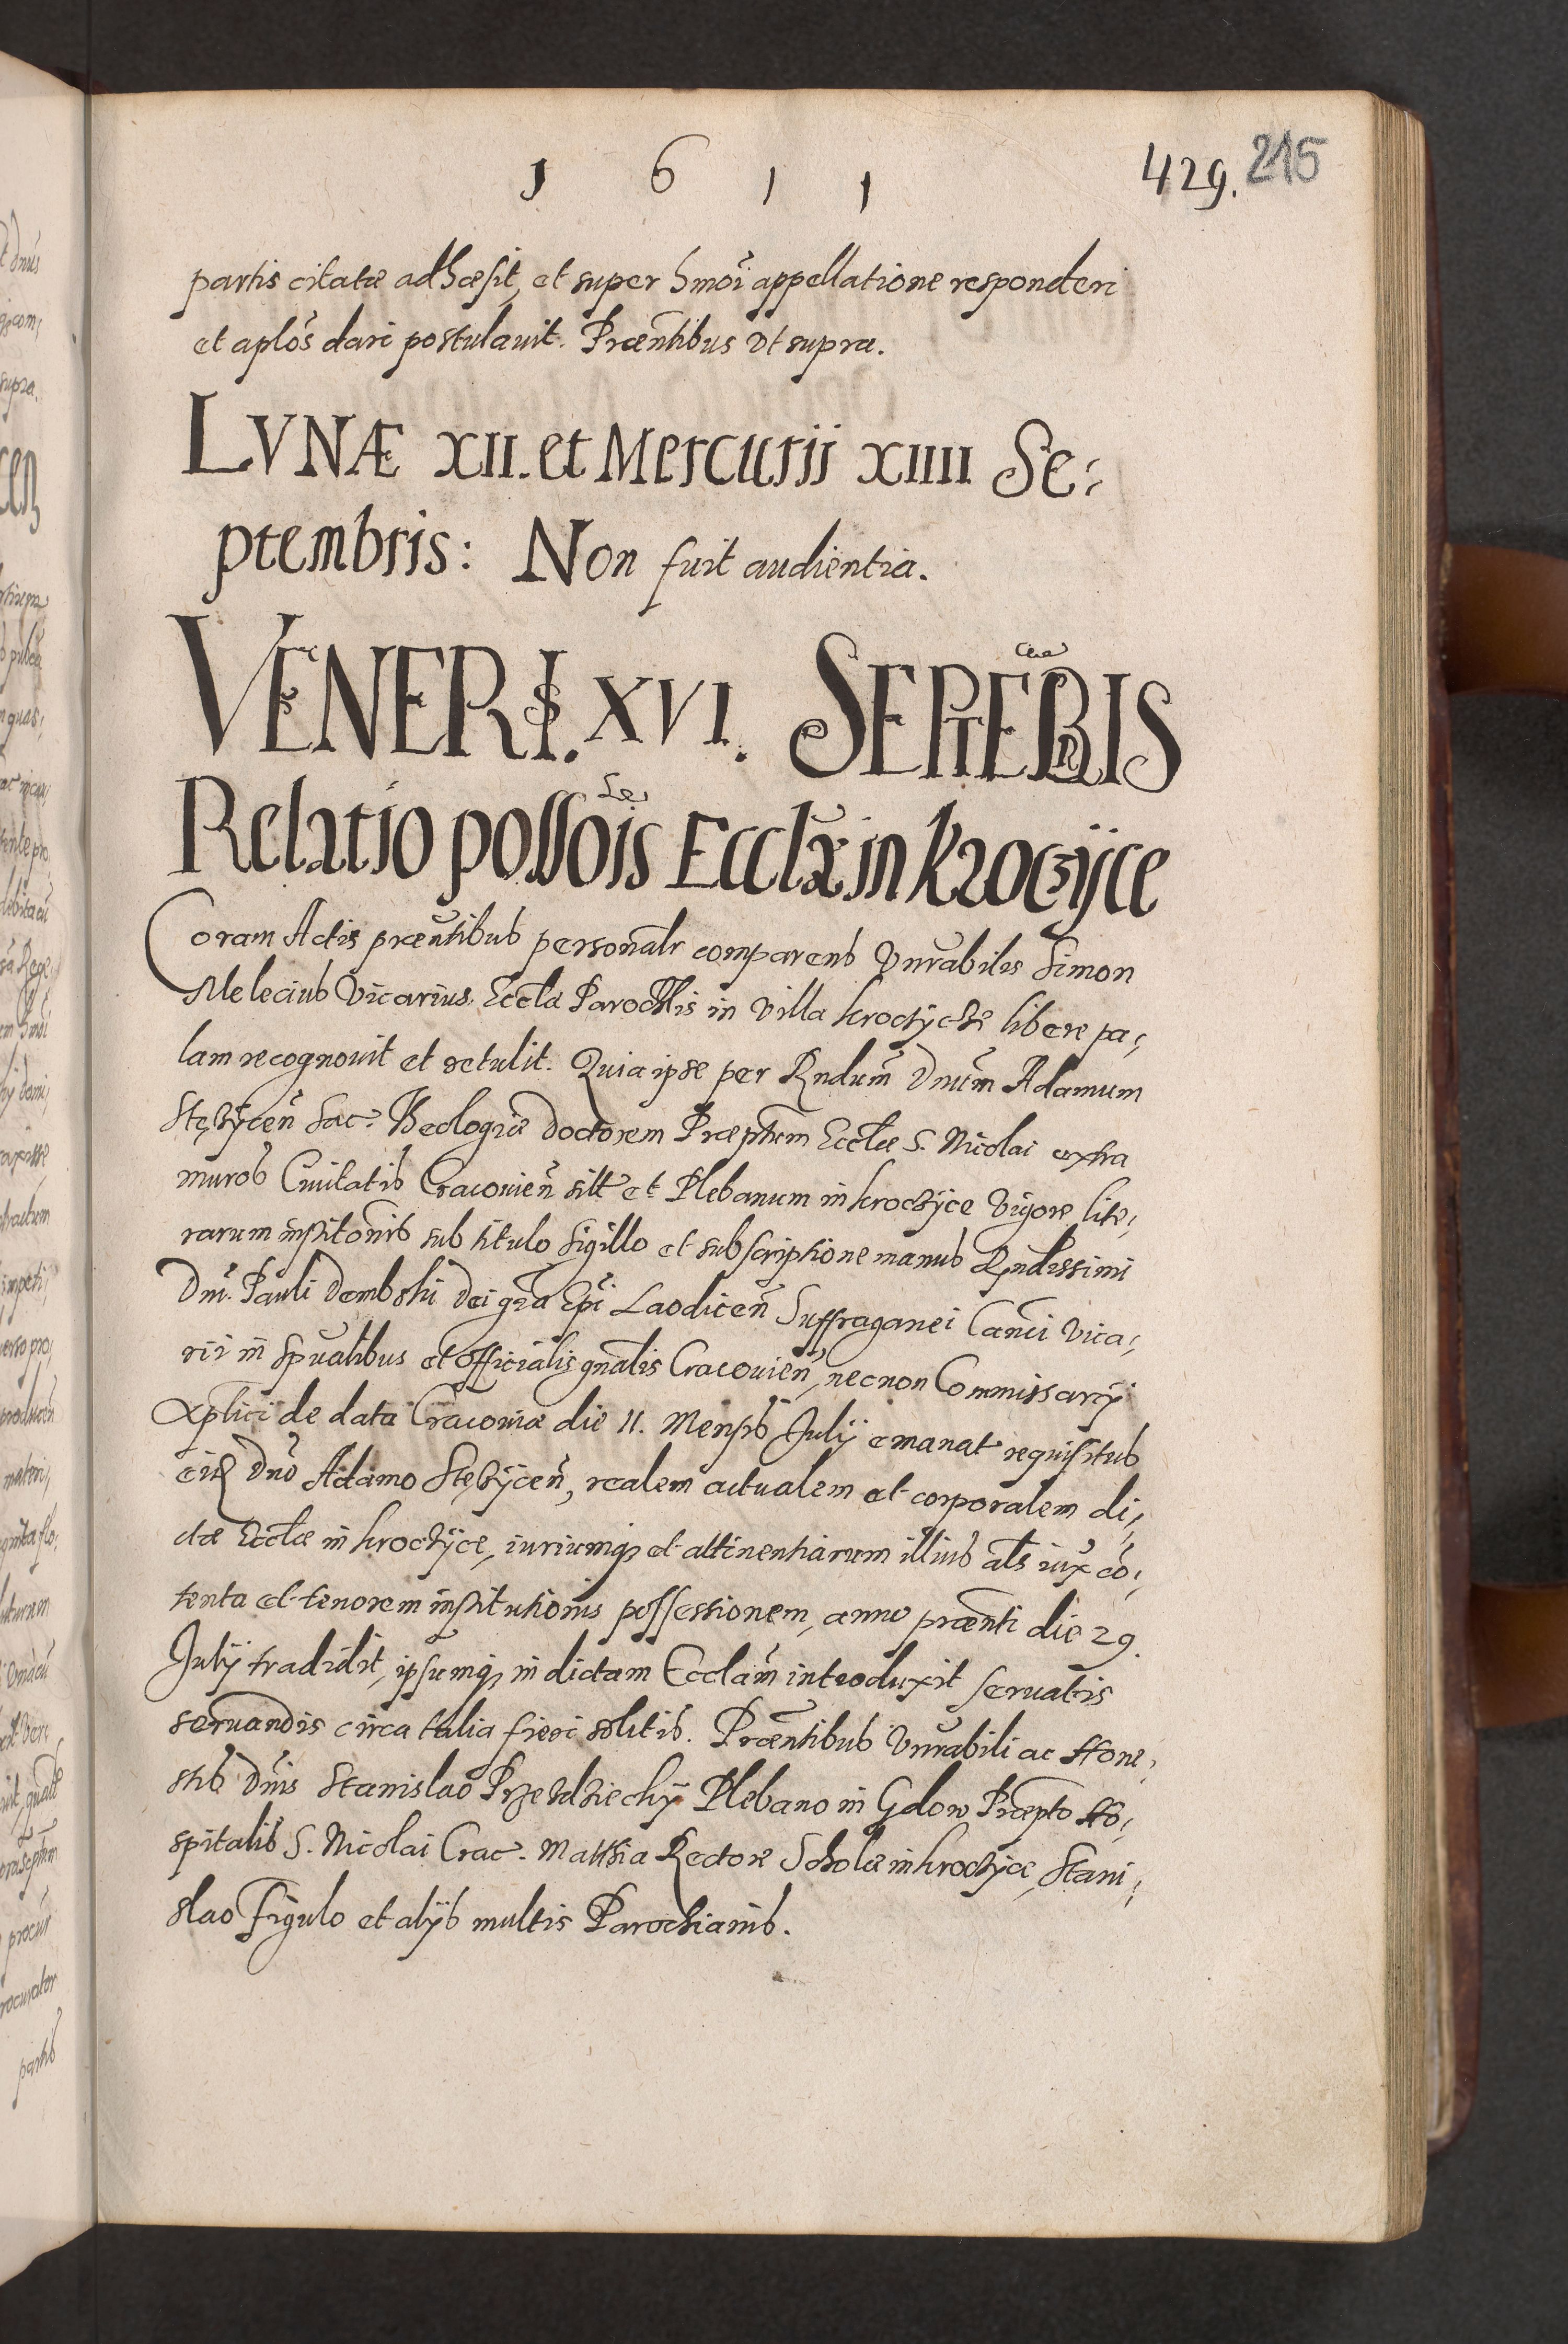 1 6 1 1
429. 215
partis citatæ adhæsit, et super hmōi appellatione responderi
et aplōs dari postulauit. Præntibus vt supra.
LVNÆ XII. et Mercurii XIIII Se;
ptembris: Non fuit audientia.
VENERIS. XVI. SEPTEBRIS
Relatio possōis Ecclæ in Kroczijce
Coram Actis præntibus personalr comparens Vnrabilis Simon
Melecius Vicarius Eccla Parochlis in villa kroczyche libere pa;
lam recognouit et retulit. Quia ipse per Rndum Dnum Adamum
Stęzÿcen̄ Sac. Theologiæ Doctorem Præptrem Ecclæ S. Nicolai extra
muros Ciuitatis Cracouien̄ silt et Plebanum in kroczÿce vigore lite;
rarum institonis sub titulo sigillo et subscriptione manus Rndissimi
Dni. Pauli Dembski Dei gra Epi Laodicen̄ Suffraganei Canci vica;
rii in spualibus et Officialis gnalis Cracouien̄, necnon Commissarij
Aplici de data Cracouiæ die 11. Mensis Julÿ emanat requisitus
eiꝫ Dno Adamo Stęzÿcen̄, realem actualem et corporalem di;
ctæ Ecclæ in kroczÿce, iuriumqꝫ et attinentiarum illius als iux cō;
tenta et tenorem institutionis possessionem, anno prænti die 29.
Julÿ tradidit, ipsumqꝫ in dictam Ecclam introduxit seruatis
seruandis circa talia fieri solitis. Præntibus Vnrabili ac Hone;
stis Dnis Stanislao Przezdziechÿ Plebano in Gdow Præpto Ho;
spitalis S. Nicolai Crac. Matthia Rectore Scholæ in kroczÿce, Stani;
slao Figulo et alÿs multis Parochianis.